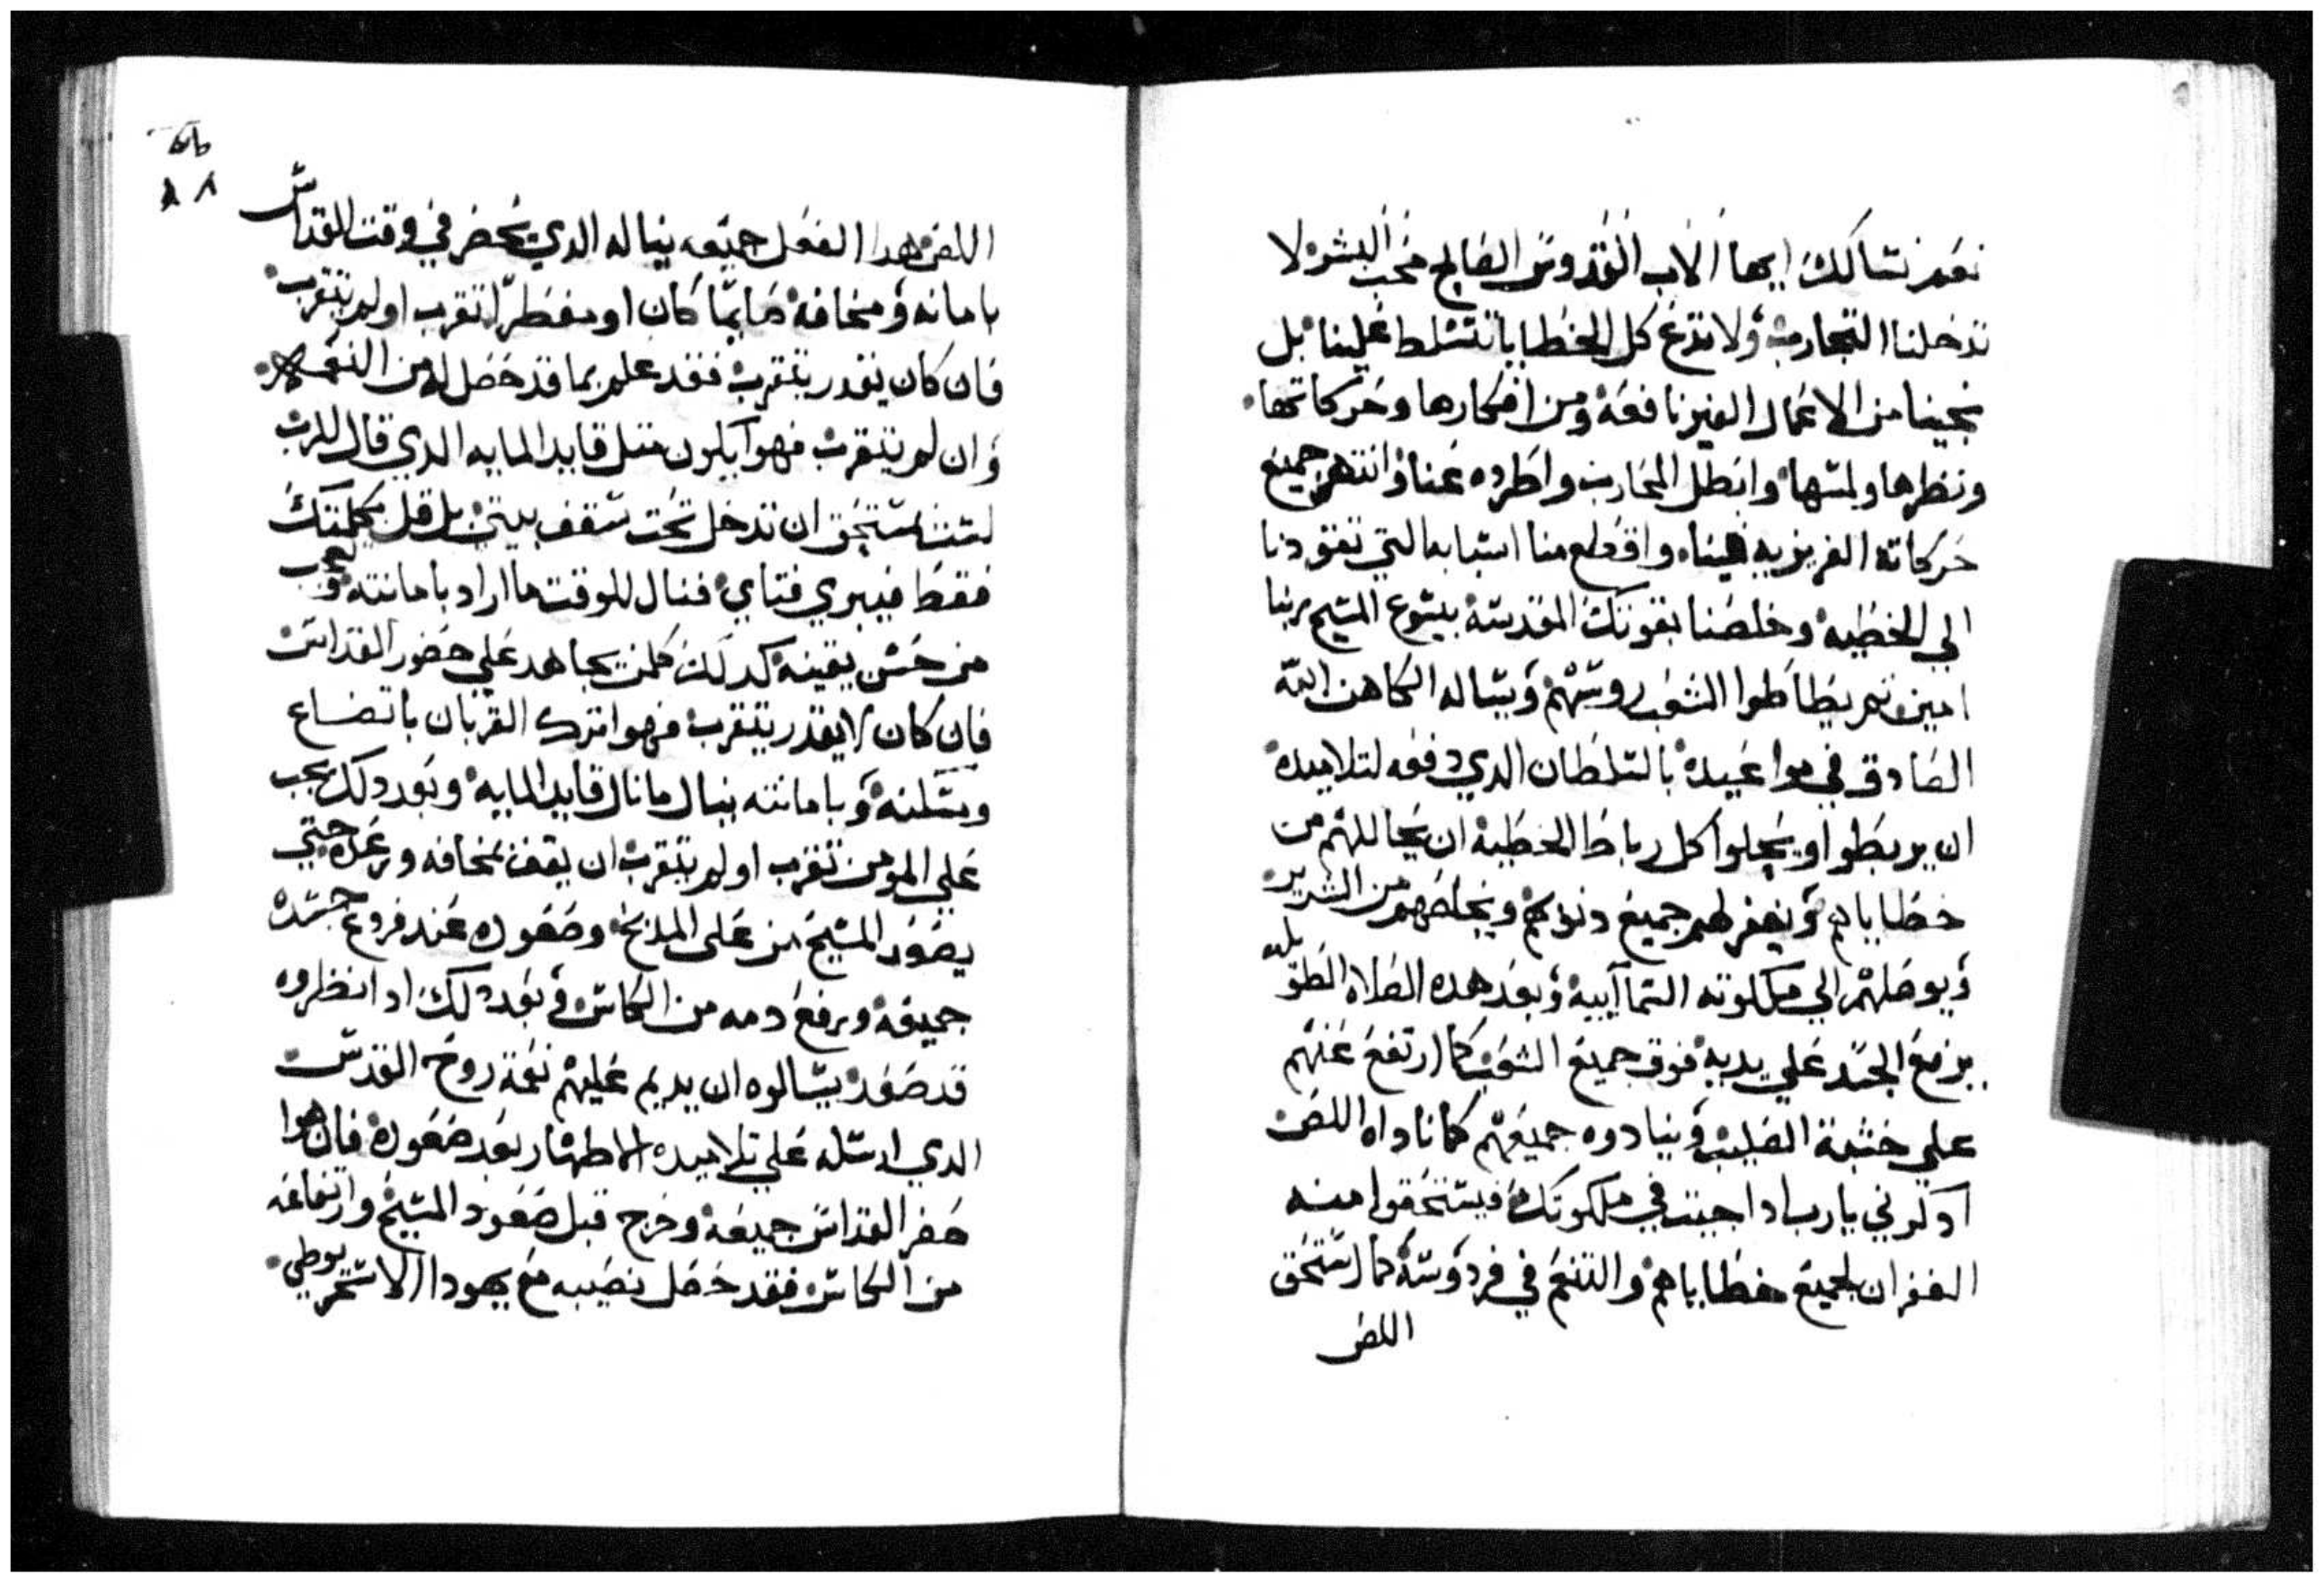 نعم نسالك ايها الاب القدوس الصالح محب البشر لا
تدخلنا التجارب ولا تدع كل الخطايا تتسلط علينا بل
نجينا من الاعمال الغير نافعة ومن افكارها وحركاتها
ونظرها ولمسها وابطل المحارب واطرده عنا وانتهر جميع
حركاته الغريزيه فينا واقطع منا اسبابه التي تقودنا
الي الخطيه وخلصنا بقوتك المقدسة بيسوع المسيح ربنا
امين ثم يطاطوا الشعب روسهم ويساله الكاهن الله
الصادق في مواعيده بالسلطان الدي دفعه لتلاميده
ان يربطوا ويحلوا كل رباط الخطية ان يحاللهم من
خطاياهم ويغفر لهم جميع دنوبهم ويخلصهم من الشرير
ويوصلهم الي ملكوته السماييه وبعد هده الصلاه الطويله
يرفع الجسد علي يديه فوق جميع الشعب كما ارتفع عنهم
علي خشبة الصليب وينادوه جميعهم كما ناداه اللص
ادكرني يارب ادا جيت في ملكوتك فيستحقوا منه
الغفران لجميع خطاياهم والتنعم في فردوسه كما استحق
اللص
٨٨
اللص هدا الفعل جميعه يناله الدي يحضر في وقت القداس
بامانه ومخافة صايما كان او مفطرا تقرب او لم يتقرب
فان كان يقدر يتقرب فقد علم بما قد حصل له من النعمه
وان لم يتقرب فهوا يكون متل قايد المايه الدي قال للرب
لست مستحق ان تدخل تحت سقف بيتي بل قل بكلمتك
فقط فيبري فتاي فنال للوقت ما اراد بامانته وعجب
من حسن يقينه كدلك كلمن يجاهد علي حضور القداس
فان كان لا يقدر يتقرب فهوا يترك القربان باتضاع
ومسكنه وبامانته ينال ما نال قايد المايه وبعد دلك يجب
علي المومن تقرب او لم يتقرب ان يقف بمخافه ورعده حتي
يصعد المسيح من علي المدبح وصعوده عند فروغ جسده
جميعه ويرفع دمه من الكاس وبعد دلك ادا نظروه
قد صعد يسالوه ان يديم عليهم نعمة روح القدس
الدي ارسله علي تلاميده الاطهار بعد صعوده فان هوا
حضر القداس جميعه وخرج قبل صعود المسيح وارتفاعه
من الكاس فقد حصل نصيبه مع يهودا الاسخريوطي